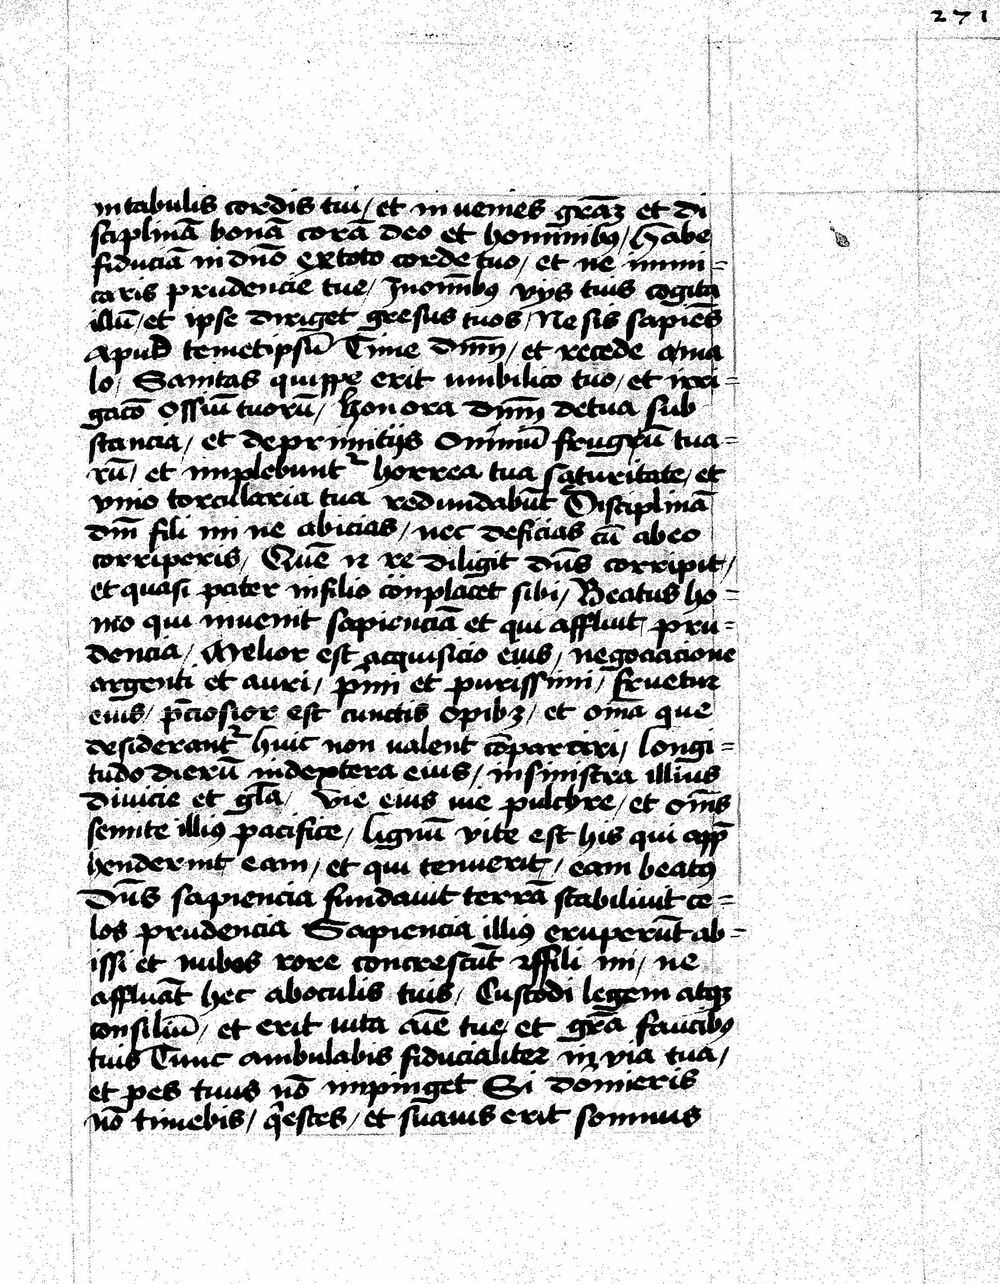 271
in tabulis cordis tui / et invenies grãȝ et di
sciplinã bonã corã deo et hominibꝰ / Habe
fiduciã in dño ex toto corde tuo / et ne inni=
caris prudencie tue / In oĩnibꝰ vijs tuis cogita
illũ / et ipse diriget gresus tuos / Ne sis sapiẽs
apud temetipsũ Time dnm̃ / et recede a ma
lo / Sanitas quippe erit umbilico tuo / et irri=
gacõ ossiũ tuorũ / honora dnm̃ de tua sub
stancia / et de primitijs omniũ frugũ tua=
rũ / et implebuntᷣ horrea tua saturitate / et
vino torcularia tua redundabũt Disciplinã
dñi fili mi ne abicias / nec deficias cũ ab eo
corriperis / Quẽ diligit dñs corripit /
et quasi pater in filio complacet sibi / Beatus ho=
mo qui invenit sapienciã et qui affluit pru=
dencia / Melior est acquisicio eius / negociacione
argenti et auri / p̃mi et purissimi / fructus
eius / p̃ciosior est cunctis opibȝ / et om̃a que
desiderantᷣ huic non valent cõparari / longi=
tudo dierũ in dextera eius / in sinistra illius
divicie et gl̃a / vie eius vie pulchre / et om̃s
semite illiꝰ pacifice / lignũ vite est his qui app̃
henderint eam / et qui tenuerit / eam beatꝰ
Dñs sapiencia fundavit terrã stabilivit ce=
los prudencia Sapiencia illiꝰ eruperũt ab=
issi et nubes rore concrescũt fili mi / ne
affluãt hec ab oculis tuis / Custodi legem atqȝ
consiliũ / et erit vita aĩe tue et gr̃a faucibꝰ
tuis Tunc ambulabis fiducialiter in via tua /
et pes tuus nõ impinget Si dormieris
nõ timebis / q̃esces / et suavis erit somnus